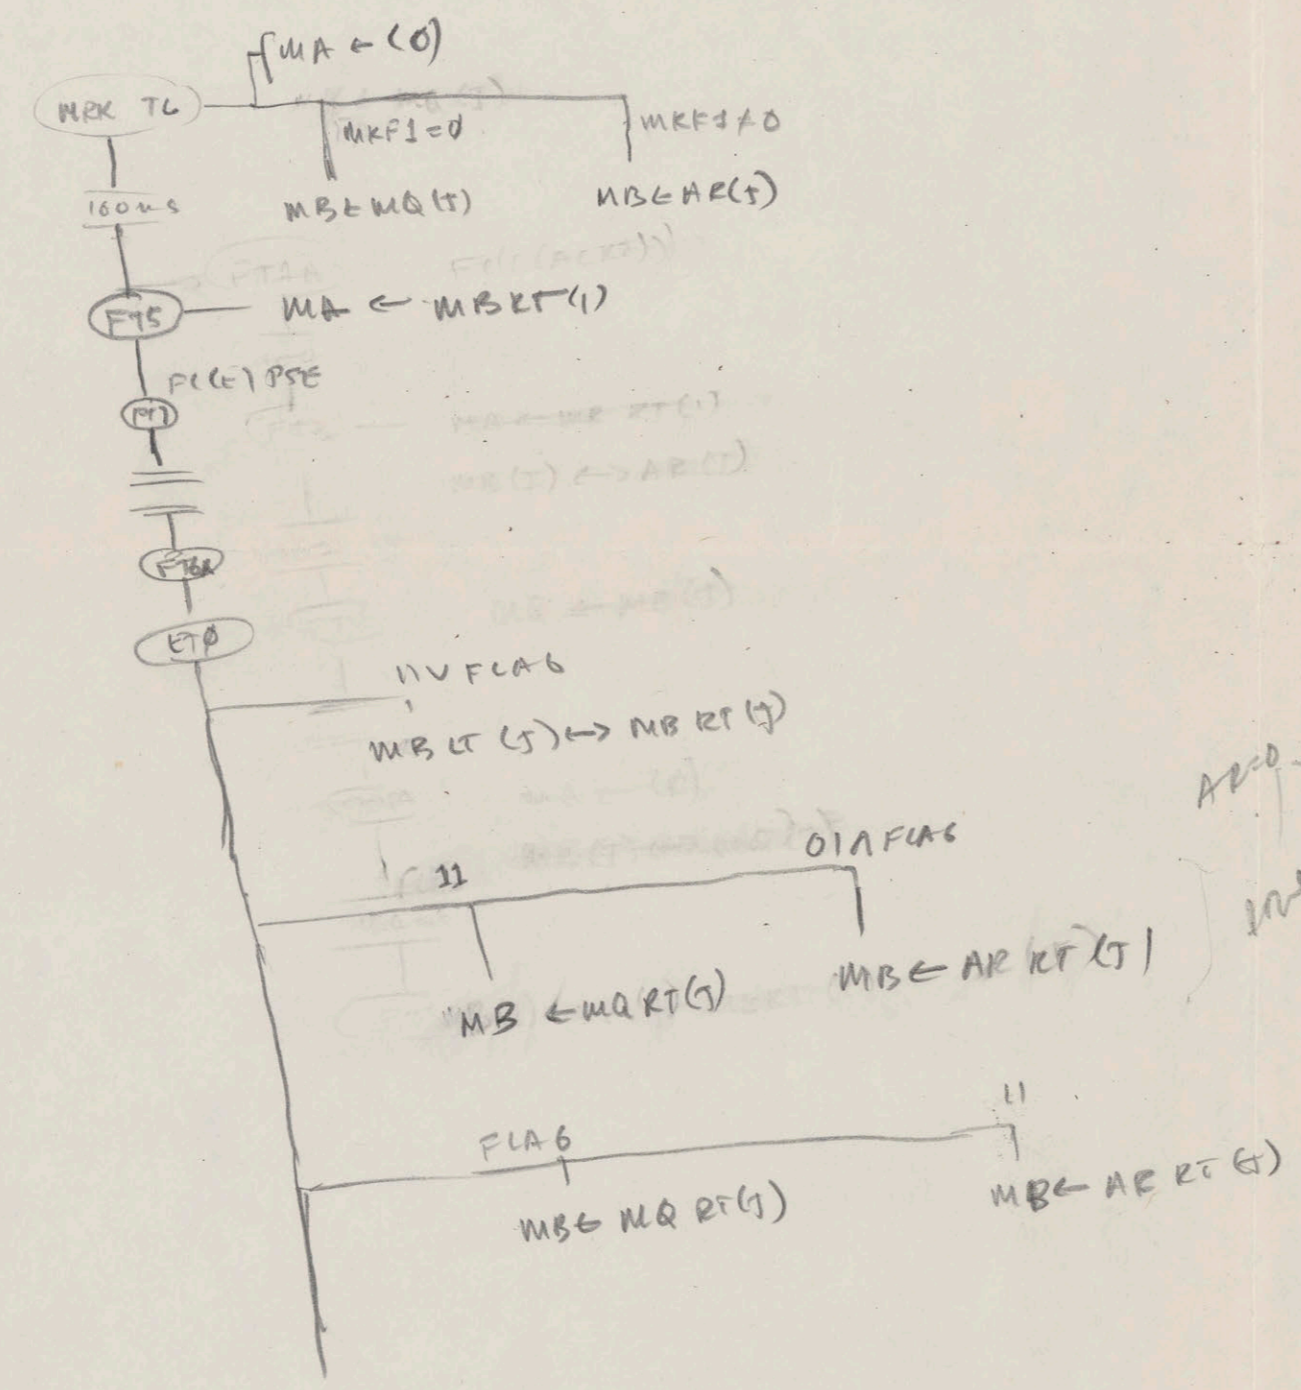 MA ← (0)
MRK T6
MKF1=0
MKF1≠0
160ns
MB←MQ(J)
MB←AR(J)
FT5
MA ← MBRT(1)
FC(E) PSE
FT6A
ET0
11 V FLAG
MB LT (J)↔ MB RT (J)
AR=0
01 Λ FLAG
11
MB ← AR RT (J)
MB ← MQ RT(J)
11
FLAG
MB← AR RT (J)
MB← MQ RT(J)